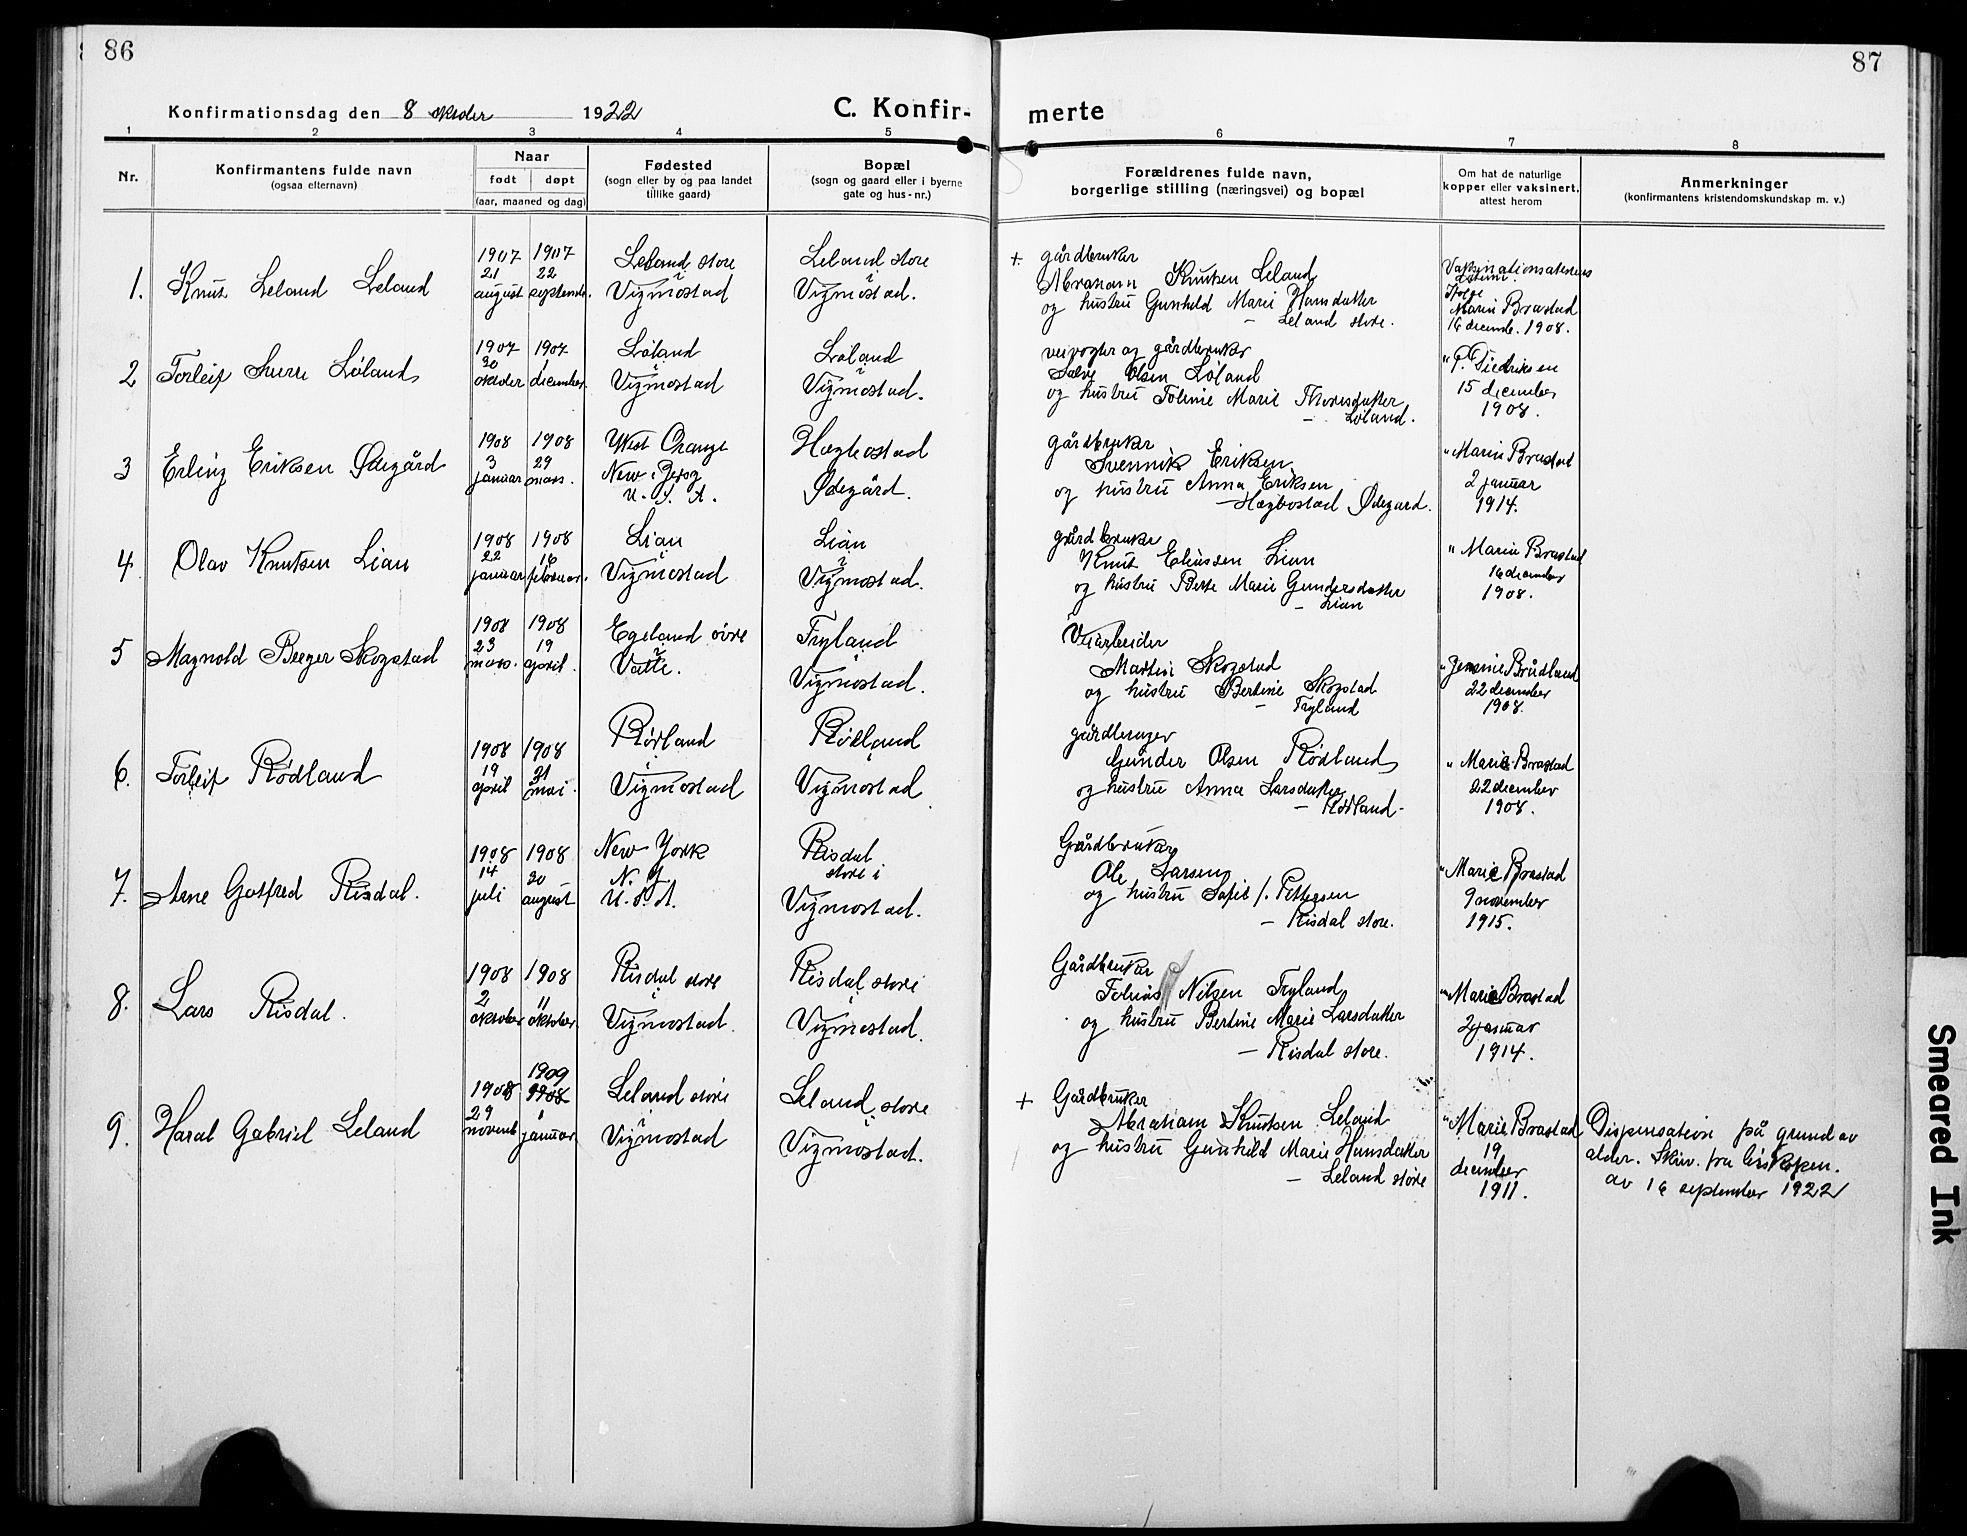 86
87
Konfirmationsdag den 8 oktober 1922
C. Konfir-
merte
1 2 3 4 5 6 7 8
Nr.
Konfirmantens fulde navn
(ogsaa efternavn)
Naar
født døpt
(aar, maaned og dag)
Fødested
(sogn eller by og paa landet
tillike gaard)
Bopæl
(sogn og gaard eller i byerne
gate og hus-nr.)
Forældrenes fulde navn,
borgerlige stilling (næringsvei) og bopæl
Om hat de naturlige
kopper eller vaksinert,
attest herom
Anmerkninger
(konfirmantens kristendomskundskap m. v.)
1. Knut Leland Leland
1907 21 august
1907 22 septembr.
Leland store
i
Vigmostad
Leland store
i
Vigmostad.
+ gårdbruker
Abraham Knutsen Leland
og hustru Gunhild Marie Hansdatter
– Leland store.
Vaksinationsattest
Marie Brastad
16 decemb. 1908.
2 Torleif Løland
1907 30 oktober
1907 december.
Løland
i
Vigmostad
Løland
i
Vigmostad.
veivogter og gårdbruker
Salve Olsen Løland
og hustru Toline Marie Thorsdatter
– Løland.
" P. Diedriksen
15 december
1908.
3 Erling Eriksen Ødegård
1908 3 januar
1908 29 mars.
West Orange
New Jersy
U. S. A.
Hægbostad
Ødegård.
gårdbruker
Svennik Eriksen
og hustru Anna Eriksen
– Hægbostad Ødegård.
" Marie Brastad
2 januar
1914.
4 Olav Knutsen Lian
1908 22 januar
1908 16 februar.
Lian
i
Vigmostad
Lian
i
Vigmostad.
gårdbruker
Knut Eliussen Lian
og hustru Berte Marie Gundersdatter
– Lian
" Marie Brastad
16 december
1908.
5 Magnold Berger Skogstad
1908 23 mars.
1908 19 april.
Egeland øvre
i
Valle.
Tryland
i
Vigmostad.
Veiarbeider
Martin Skogstad
og hustru Bertine Skogstad
– Tryland
" Jennie Brådland
22 december
1908.
6. Torleif Rødland
1908 19 april
1908 31 mai.
Rødland
i
Vigmostad
Rødland
i
Vigmostad
gårdbruger
Gunder Olsen Rødland
og hustru Anna Larsdatter
– Rødland –
" Marie Brastad
22 december
1908.
7. Arne Gotfred Risdal.
1908 14 juli
1908 30 august
New York
N. Y.
U. S. A.
Risdal
store i
Vigmostad.
Gårdbruker
Ole Larsen
og hustru Sofie f. Pettersen
– Risdal store.
" Marie Brastad
9 november
1915.
8. Lars Risdal.
1908 2 oktober
1908 11 oktober.
Risdal store
i
Vigmostad.
Risdal store
i
Vigmostad.
Gårdbruker
Tobias Nilsen Tryland
og hustru Bertine Marie Larsdatter
– Risdal store.
" Marie Brastad
2 januar
1914.
9. Haral Gabriel Leland
1908 29 novemb
1909 1908 1 januar
Leland store
i
Vigmostad
Leland store
i
Vigmostad.
+ Gårdbruker
Abraham Knutsen Leland
og hustru Gunhild Marie Hansdatter
– Leland store
" Marie Brastad
19
december
1911.
Dispensation på grund av
alder. Skriv. fra biskopen.
av 16 september 1922
Smeared Ink